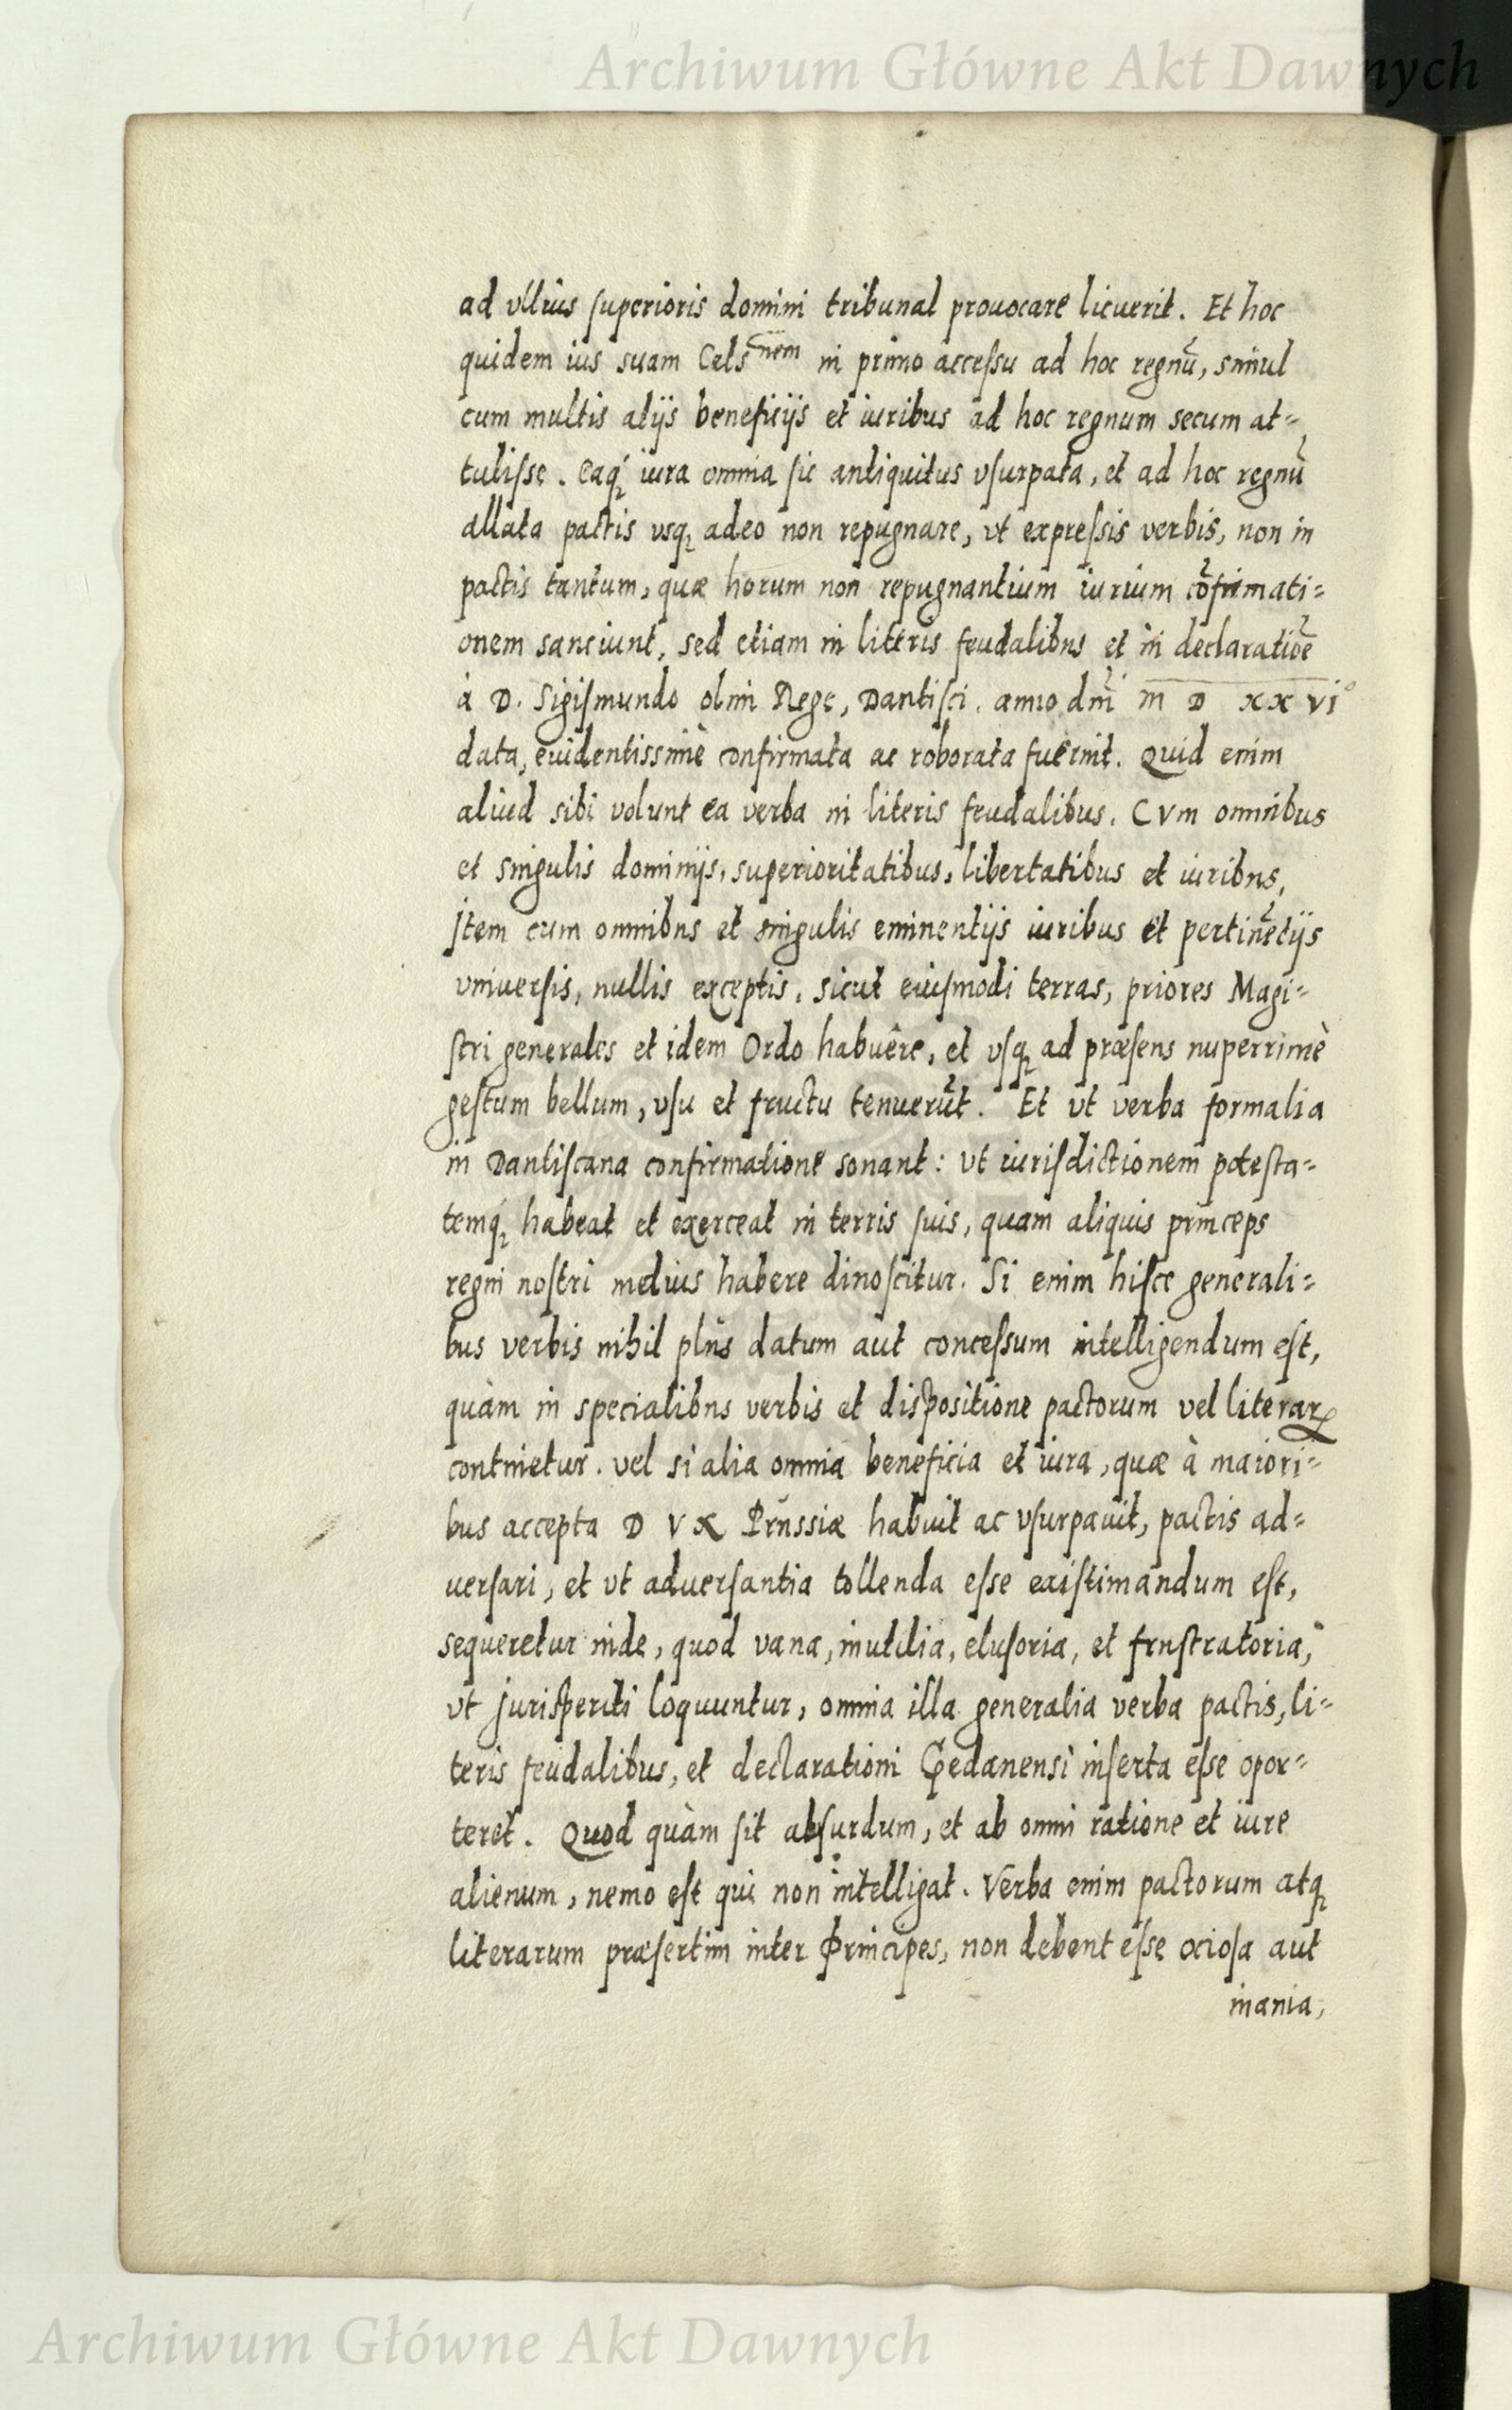 Archiwum Główne Akt Dawnych
ad vllius ſuperioris domini tribunal prouocare licuerit. Et hoc
quidem ius suam Cels^nem in primo acceſsu ad hoc regnũ, simul
cum multis alijs beneficijs et iuribus ad hoc regnum secum at=
tulisſe. Eaq́ꝫ iura omnia ſic antiquitus vſurpata, et ad hoc regnũ
allata pactis vsqꝫ adeo non repugnare, vt expreſsis verbis, non in
pactis tantum, quæ horum non repugnantium iurium cõfirmati=
onem sanciunt, sed etiam in literis feudalibus et in declaratiõe
à D. Sigiſmundo olim Rege, Dantiſci, anno dñi M D XX VI°
data, euidentissimè confirmata ac roborata fuerint. Quid enim
aliud sibi volunt ea verba in literis feudalibus. CVm omnibus
et singulis dominijs, superioritatibus, libertatibus et iuribus,
Jtem cum omnibus et singulis eminentijs iuribus et pertinẽtijs
vniuerſis, nullis exceptis, sicut eiuſmodi terras, priores Magi=
ſtri generales et idem Ordo habuêre, et vſqꝫ ad præſens nuperrimè
geſtum bellum, vſu et fructu tenuerũt. Et vt verba formalia
in Dantiſcana confirmatione sonant: vt iuriſdictionem poteſta=
temq́ꝫ habeat et exerceat in terris ſuis, quam aliquis princeps
regni noſtri melius habere dinoſcitur. Si enim hiſce generali=
bus verbis nihil plus datum aut conceſsum intelligendum eſt,
quàm in specialibus verbis et diſpositione pactorum vel literarꝝ
continetur. vel si alia omnia beneficia et iura, quæ à maiori=
bus accepta D V X Prussiæ habuit ac vſurpauit, pactis ad=
uerſari, et vt aduerſantia tollenda eſse exiſtimandum eſt,
sequeretur inde, quod vana, inutilia, eluſoria, et fruſtratoria,
vt Juriſperiti loquuntur, omnia illa generalia verba pactis, li=
teris feudalibus, et declarationi Gedanensi inſerta eſse opor=
teret. Quod quàm ſit abſurdum, et ab omni ratione et iure
alienum, nemo eſt qui non intelligat. Verba enim pactorum atqꝫ
literarum præſertim inter Principes, non debent eſse ocioſa aut
inania,
Archiwum Główne Akt Dawnych